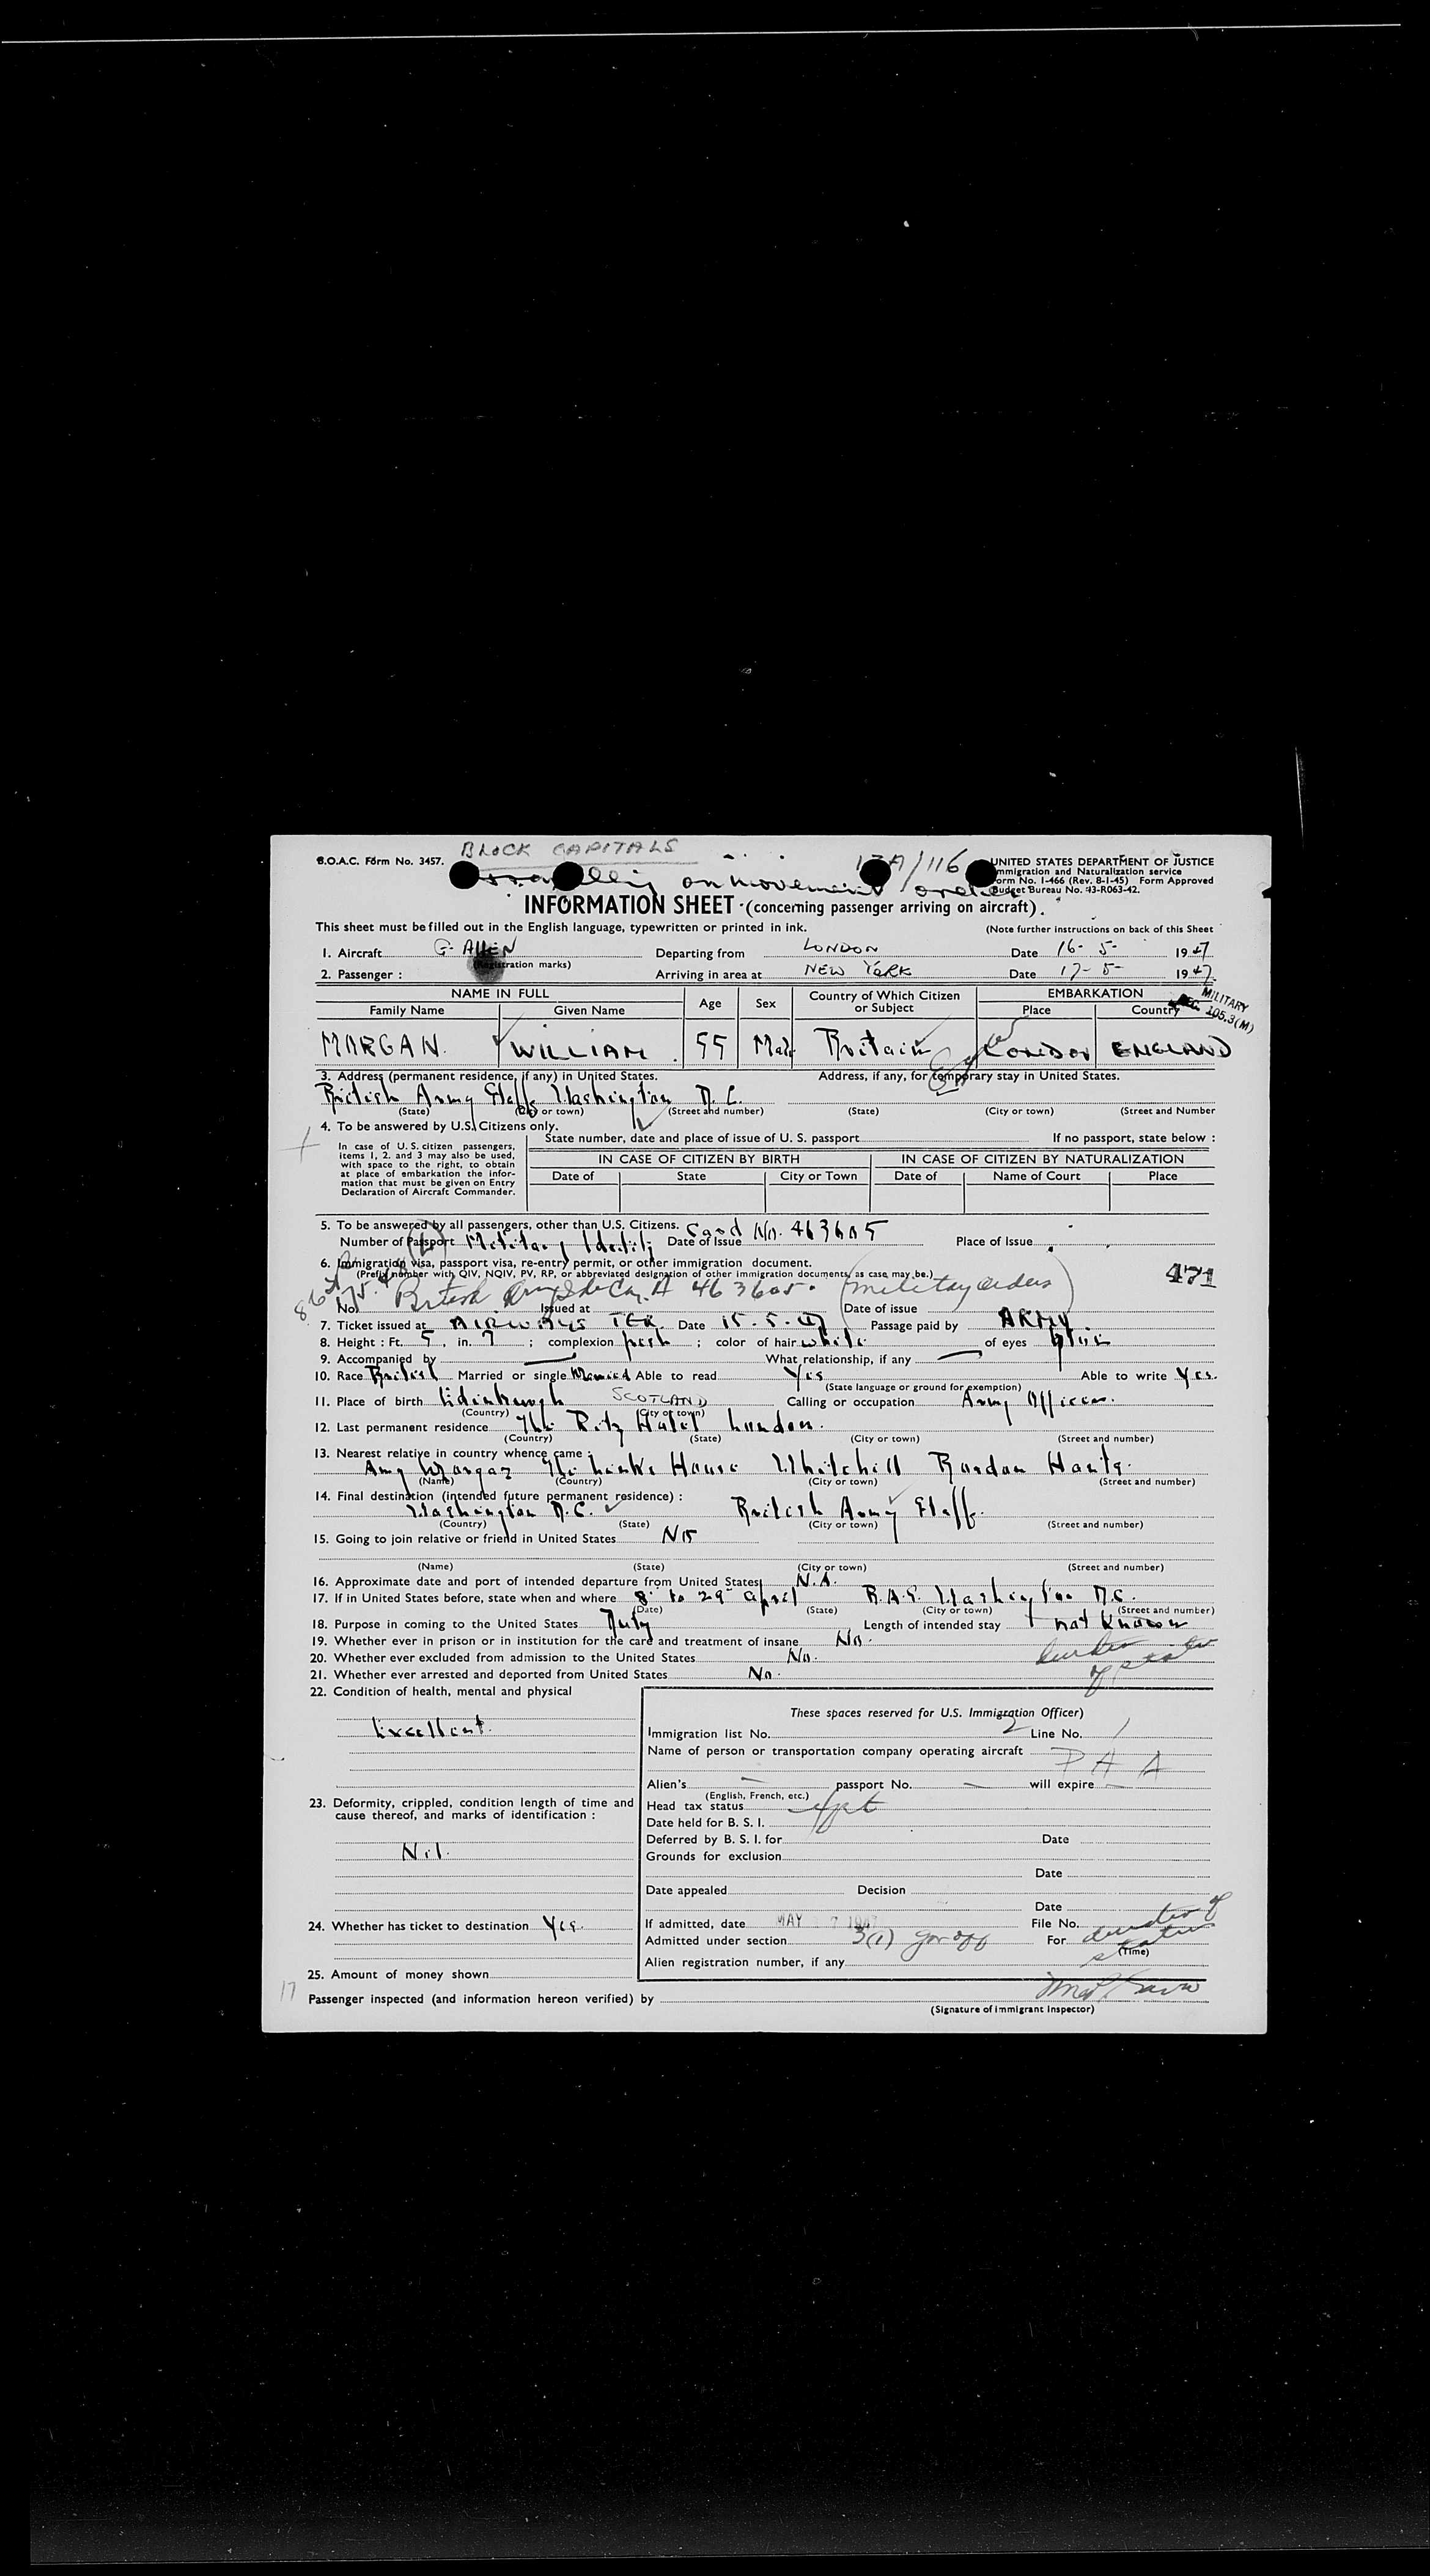 BLOCK CAPITALS
B.O.A.C. Form No. 3457.
17A/116
UNITED STATES DEPARTMENT OF JUSTICE
Immigration and Naturalization service
Form No. I-466 (Rev. 8-1-45) Form Approved
Budget Bureau No. 43-R063-42.
on movement order
INFORMATION SHEET (concerning passenger arriving on aircraft).
This sheet must be filled out in the English language, typewritten or printed in ink. (Note further instructions on back of this Sheet
1. Aircraft G- Departing from LONDON Date 16-5- 1947
(Registration marks)
2. Passenger : Arriving in area at NEW YORK Date 17-5- 1947
NAME IN FULL Age Sex Country of Which Citizen or Subject EMBARKATION
Family Name Given Name Place Country
MILITARY
105.3(M)
MORGAN WILLIAM 55 Male Britain LONDON ENGLAND
3. Address (permanent residence, if any) in United States. Address, if any, for temporary stay in United States.
British Army Staff Washington D.C.
(State) (City or town) (Street and number) (State) (City or town) (Street and Number
4. To be answered by U.S. Citizens only.
In case of U.S. citizen passengers, items 1, 2, and 3 may also be used, with space to the right, to obtain at place of embarkation the information that must be given on Entry Declaration of Aircraft Commander.
State number, date and place of issue of U. S. passport If no passport, state below :
IN CASE OF CITIZEN BY BIRTH IN CASE OF CITIZEN BY NATURALIZATION
Date of State City or Town Date of Name of Court Place
5. To be answered by all passengers, other than U.S. Citizens. Card No. 463605
Number of Passport Military Identity Date of Issue Place of Issue
6. Immigration visa, passport visa, re-entry permit, or other immigration document.
(Prefix number with QIV, NQIV, PV, RP, or abbreviated designation of other immigration documents, as case may be.)
471
British A 463605. (military orders)
No. Issued at Date of issue
7. Ticket issued at AIRWAYS TER. Date 15.5.47 Passage paid by ARMY
8. Height : Ft. 5, in. 7 ; complexion fresh ; color of hair white of eyes blue
9. Accompanied by — What relationship, if any —
10. Race British Married or single Married Able to read Yes Able to write Yes.
(State language or ground for exemption)
11. Place of birth Edinburgh SCOTLAND Calling or occupation Army Officer.
(Country) (City or town)
12. Last permanent residence The Ritz Hotel London.
(Country) (State) (City or town) (Street and number)
13. Nearest relative in country whence came :
Amy Morgan The Links House Whitehill Bordon Hants.
(Name) (Country) (City or town) (Street and number)
14. Final destination (intended future permanent residence) :
Washington D.C. British Army Staff.
(Country) (State) (City or town) (Street and number)
15. Going to join relative or friend in United States No
(Name) (State) (City or town) (Street and number)
16. Approximate date and port of intended departure from United States N.A.
17. If in United States before, state when and where 8 to 29 april B.A.S. Washington D.C.
(Date) (State) (City or town) (Street and number)
18. Purpose in coming to the United States Duty Length of intended stay not known
19. Whether ever in prison or in institution for the care and treatment of insane No.
duration of status
20. Whether ever excluded from admission to the United States No.
21. Whether ever arrested and deported from United States No.
22. Condition of health, mental and physical
Excellent.
These spaces reserved for U.S. Immigration Officer)
Immigration list No. 2 Line No. 1
Name of person or transportation company operating aircraft P A A
Alien's — passport No. — will expire —
(English, French, etc.)
23. Deformity, crippled, condition length of time and cause thereof, and marks of identification :
Nil.
Head tax status
Date held for B. S. I.
Deferred by B. S. I. for Date
Grounds for exclusion
Date
Date appealed Decision
Date
24. Whether has ticket to destination Yes.
If admitted, date MAY 17 1947 File No.
Admitted under section 3(1) gov off For duration of status
(Time)
Alien registration number, if any
25. Amount of money shown
17
Passenger inspected (and information hereon verified) by
(Signature of Immigrant Inspector)